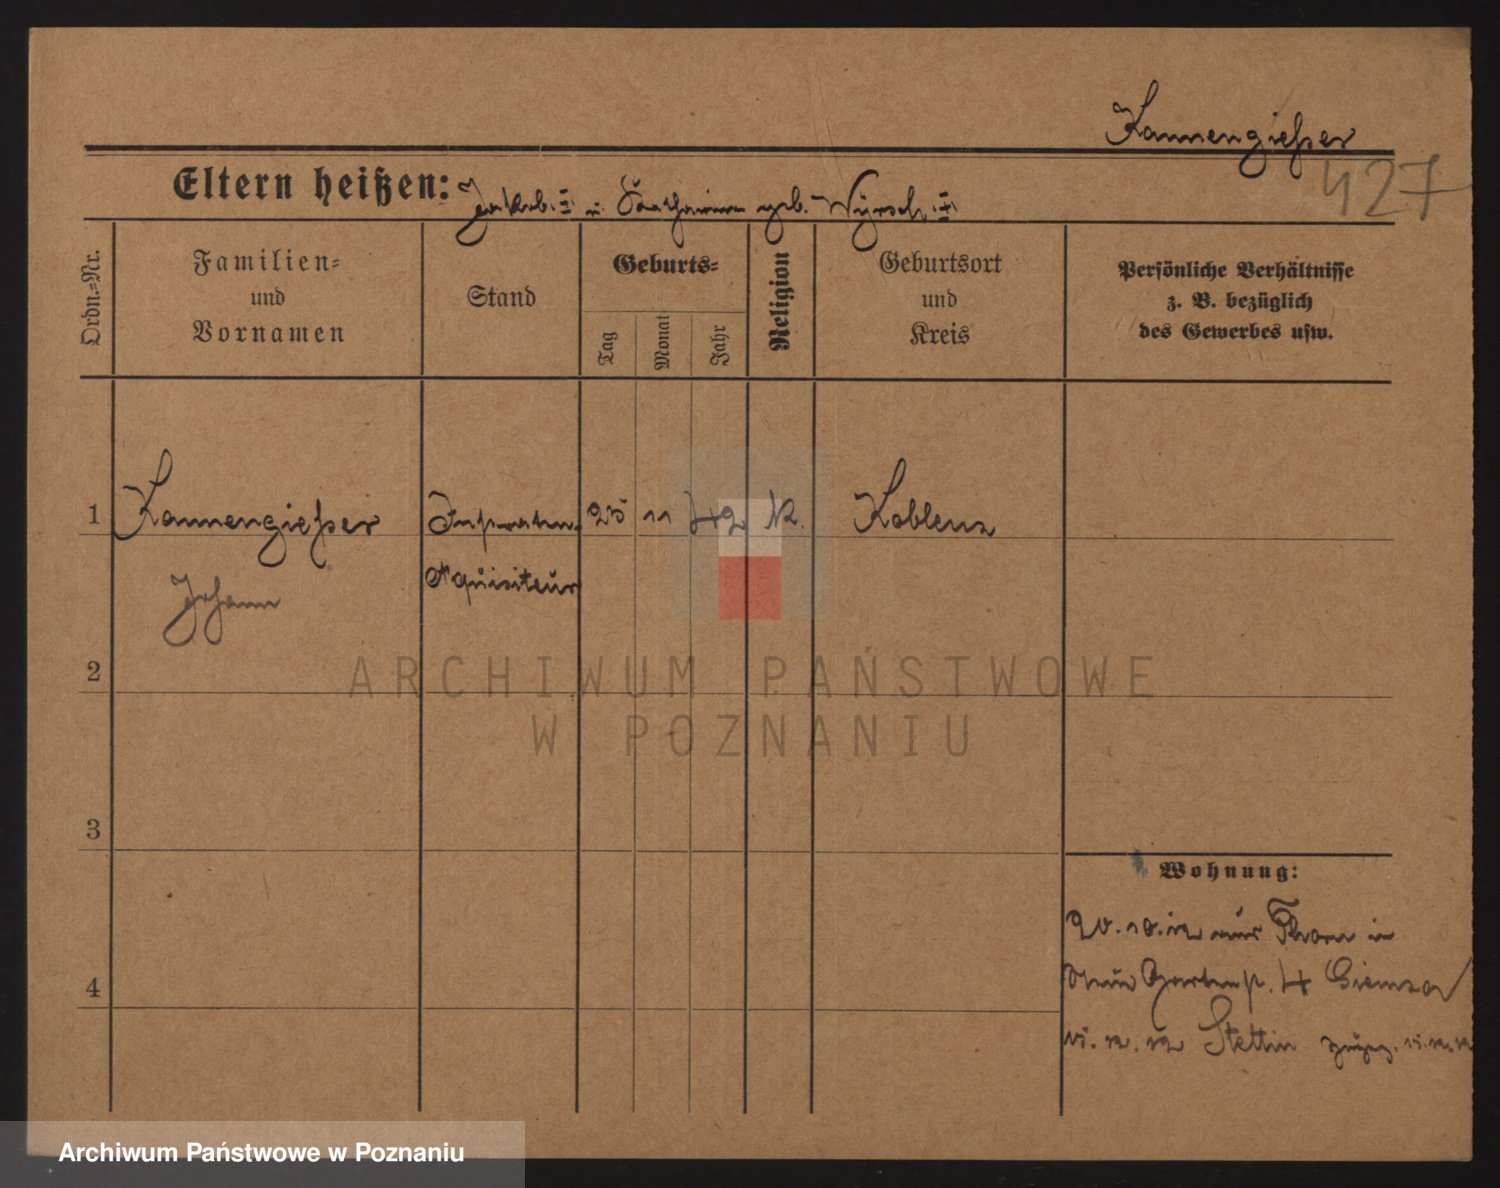 Kannengießer
427
Eltern heißen: Jakob ‡ u. Katharina geb. Wyrsch ‡
Ordn.-Nr.
Familien-
und
Vornamen
Stand
Geburts-
Tag
Monat
Jahr
Religion
Geburtsort
und
Kreis
Persönliche Verhältnisse
z. B. bezüglich
des Gewerbes usw.
1 Kannengießer Inseraten 25 11 42 K. Koblenz
Johann Aquisiteur
2
3
4
Wohnung:
20.10.12 aus Thorn in
Neue Gartenstr. 4 Giemsa
12.12 Stettin
ARCHIWUM PAŃSTWOWE
W POZNANIU
Archiwum Państwowe w Poznaniu